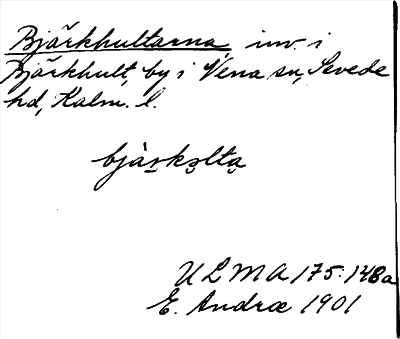 Bjärkhultarna, inv. i
Bjärkhult, by i Vena sn, Sevede
hd, Kalm. l.
bjàrkəlta
ULMA 175:148a
E. Andræ 1901